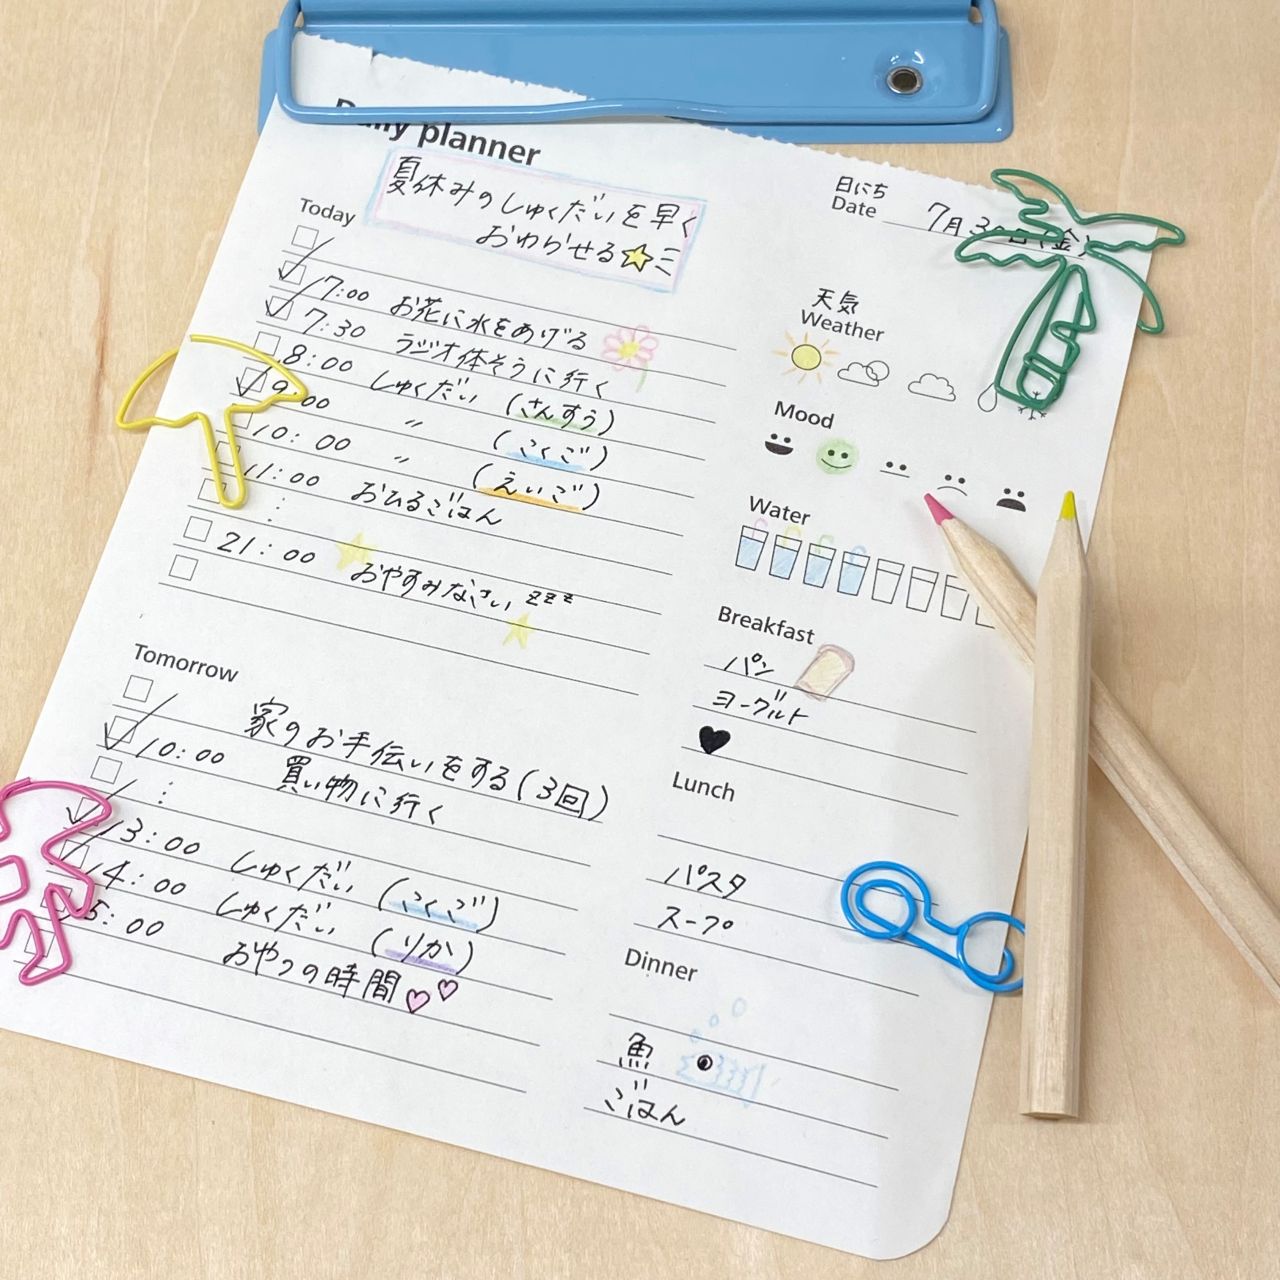 Daily planner
夏休みのしゅくだいを早く
おわらせる
日にち
Date 7月30日(金)
Today
7:00 お花に水をあげる
7:30 ラジオ体そうに行く
8:00 しゅくだい (さんすう)
9:00 〃 (こくご)
10:00 〃 (えいご)
11:00 おひるごはん
:
21:00 おやすみなさい zzz
天気
Weather
Mood
Water
Breakfast
パン
ヨーグルト
Lunch
パスタ
スープ
Dinner
魚
ごはん
Tomorrow
家のお手伝いをする(3回)
10:00 買い物に行く
:
13:00 しゅくだい (こくご)
14:00 しゅくだい (りか)
15:00 おやつの時間